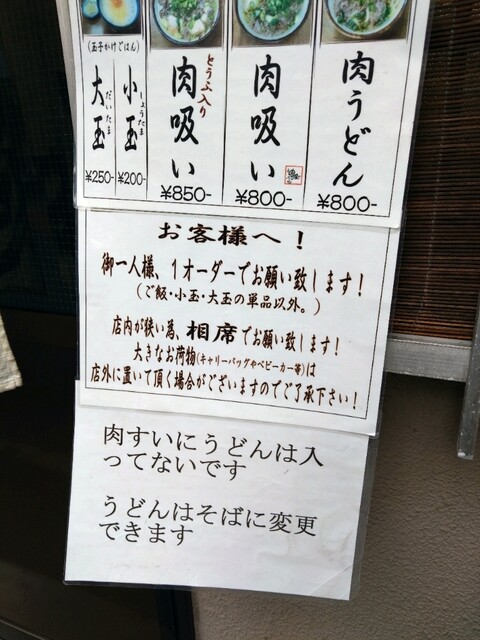 肉うどん
¥800-
肉吸い
¥800-
とうふ入り
肉吸い
¥850-
(玉子かけごはん)
小玉
しょうたま
¥200-
大玉
だいたま
¥250-
お客様へ!
御一人様、1オーダーでお願い致します!
(ご飯・小玉・大玉の単品以外。)
店内が狭い為、相席でお願い致します!
大きなお荷物(キャリーバッグやベビーカー等)は
店外に置いて頂く場合がございますのでご了承下さい!
肉すいにうどんは入
ってないです
うどんはそばに変更
できます